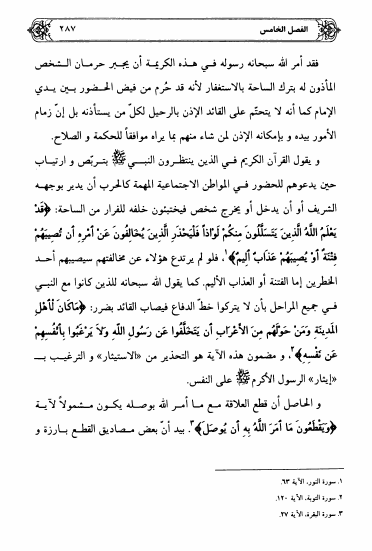 الفصل الخامس
٢٨٧
فقد أمر الله سبحانه رسوله في هذه الكريمة أن يجبر حرمان الشخص
المأذون له بترك الساحة بالاستغفار لأنه قد حُرم من فيض الحضور بين يدي
الإمام كما أنه لا يتحتّم على القائد الإذن بالرحيل لكلّ من يستأذنه بل إنّ زمام
الأمور بيده و بإمكانه الإذن لمن شاء منهم بما يراه موافقاً للحكمة و الصلاح.
و يقول القرآن الكريم في الذين ينتظرون النبي ﷺ بتربّص و ارتياب
حين يدعوهم للحضور في المواطن الاجتماعية المهمة كالحرب أن يدير بوجهه
الشريف أو أن يدخل أو يخرج شخص فيختبئون خلفه للفرار من الساحة: ﴿قَدْ
يَعْلَمُ اللَّهُ الَّذِينَ يَتَسَلَّلُونَ مِنكُمْ لِوَاذاً فَلْيَحْذَرِ الَّذِينَ يُخَالِفُونَ عَنْ أَمْرِهِ أَن تُصِيبَهُمْ
فِتْنَةٌ أَوْ يُصِيبَهُمْ عَذَابٌ أَلِيمٌ﴾١، فلو لم يرتدع هؤلاء عن مخالفتهم سيصيبهم أحد
الخطرين إما الفتنة أو العذاب الأليم. كما يقول الله سبحانه للذين كانوا مع النبي
في جميع المراحل بأن لا يتركوا خطّ الدفاع فيصاب القائد بضرر: ﴿مَاكَانَ لِأَهْلِ
المَدِينَةِ وَمَنْ حَوْلَهُم مِنَ الأَعْرَابِ أَن يَتَخَلَّفُوا عَن رَسُولِ اللَّهِ وَلاَ يَرْغَبُوا بِأَنْفُسِهِمْ
عَن نَفْسِهِ﴾٢، و مضمون هذه الآية هو التحذير من «الاستيثار» و الترغيب بـ
«إيثار» الرسول الأكرم ﷺ على النفس.
و الحاصل أن قطع العلاقة مع ما أمر الله بوصله يكون مشمولاً لآية
﴿وَيَقْطَعُونَ مَا أَمَرَ اللَّهُ بِهِ أَن يُوصَلَ﴾٣. بيد أنّ بعض مصاديق القطع بارزة و
١. سورة النور، الآية ٦٣.
٢. سورة التوبة، الآية ١٢٠.
٣. سورة البقرة، الآية ٢٧.